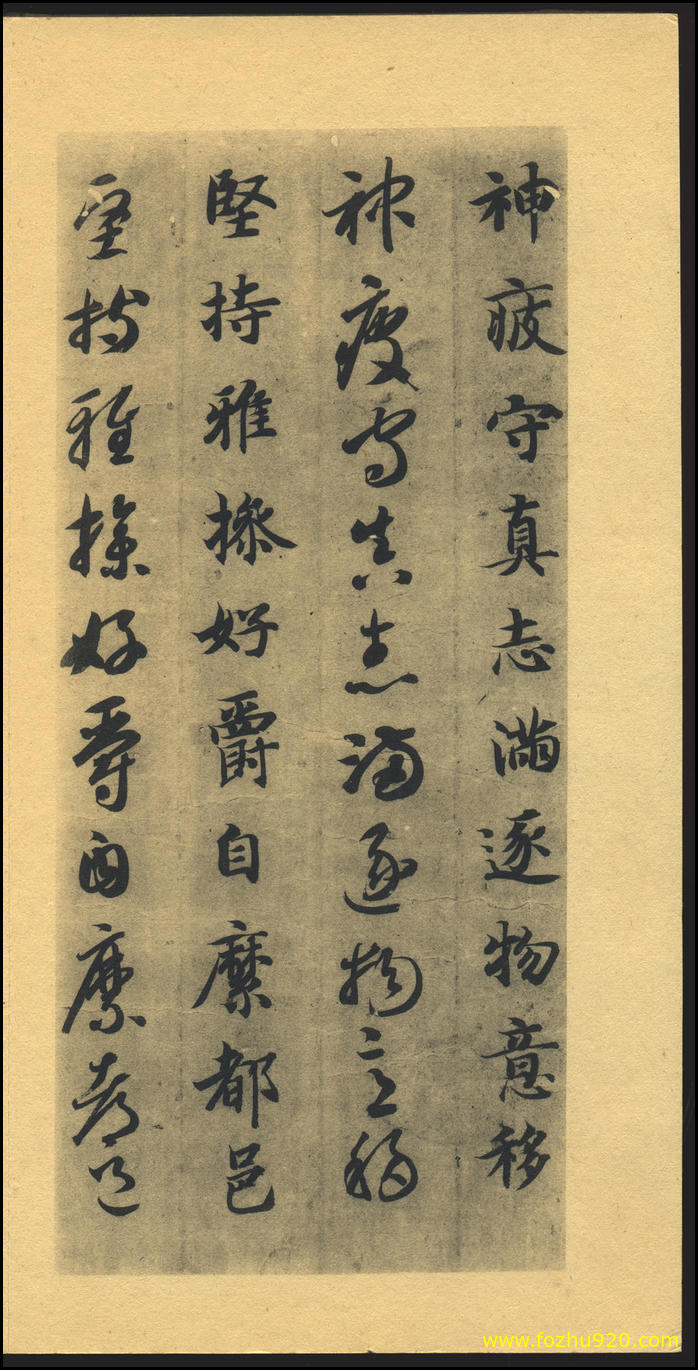 神疲守真志滿逐物意移
神疲守真志滿逐物意移
堅持雅操好爵自縻都邑
堅持雅操好爵自縻都邑
www.fozhu920.com